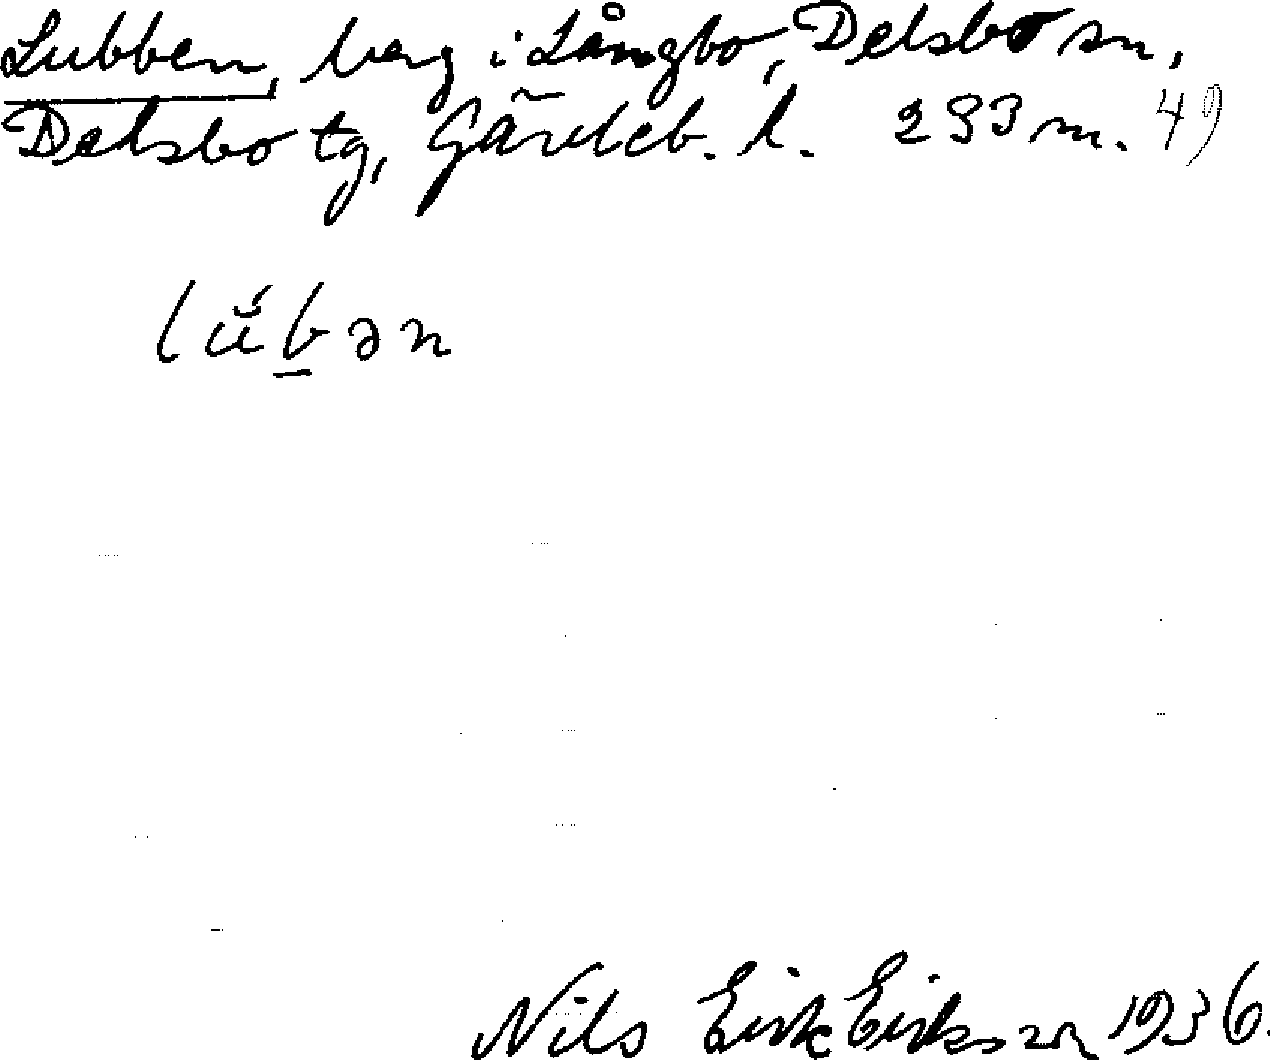 Lubben, berg i Långbo, Delsbo sn,
Delsbo tg, Gävleb. l. 293 m. 49
lŭ́b̲ən
Nils Erik Eriksson 1936.